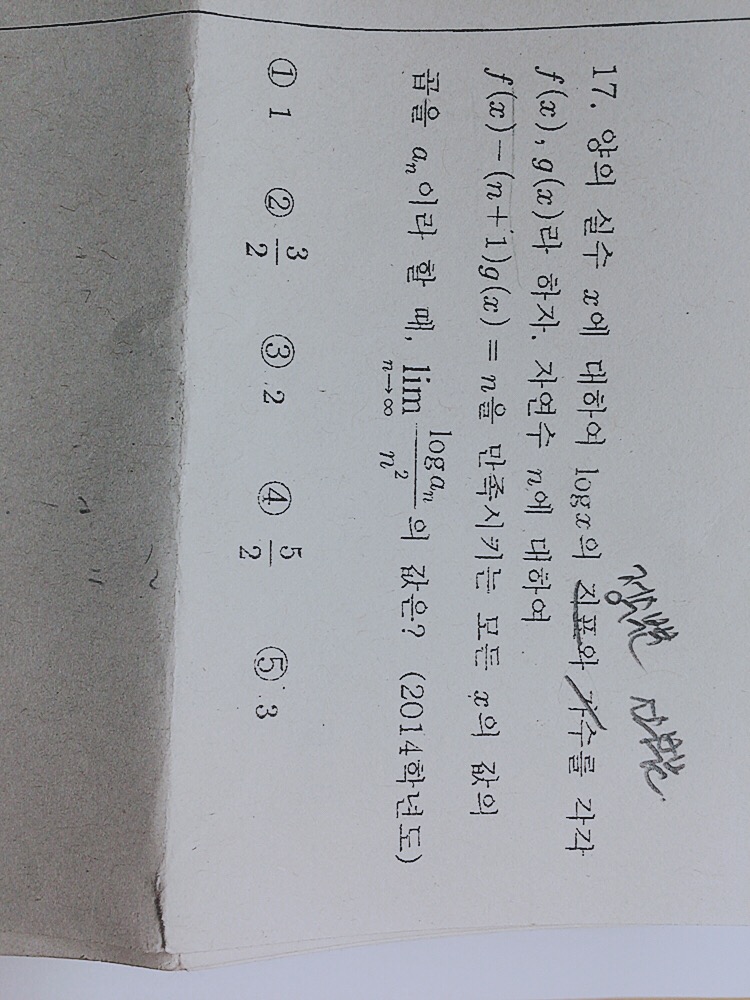 정수부분 소수부분
17. 양의 실수 x에 대하여 log x의 지표와 가수를 각각
f(x), g(x)라 하자. 자연수 n에 대하여
f(x)-(n+1)g(x)=n을 만족시키는 모든 x의 값의
곱을 aₙ이라 할 때, lim_{n→∞} (log aₙ)/(n²) 의 값은? (2014학년도)
① 1 ② 3/2 ③ 2 ④ 5/2 ⑤ 3